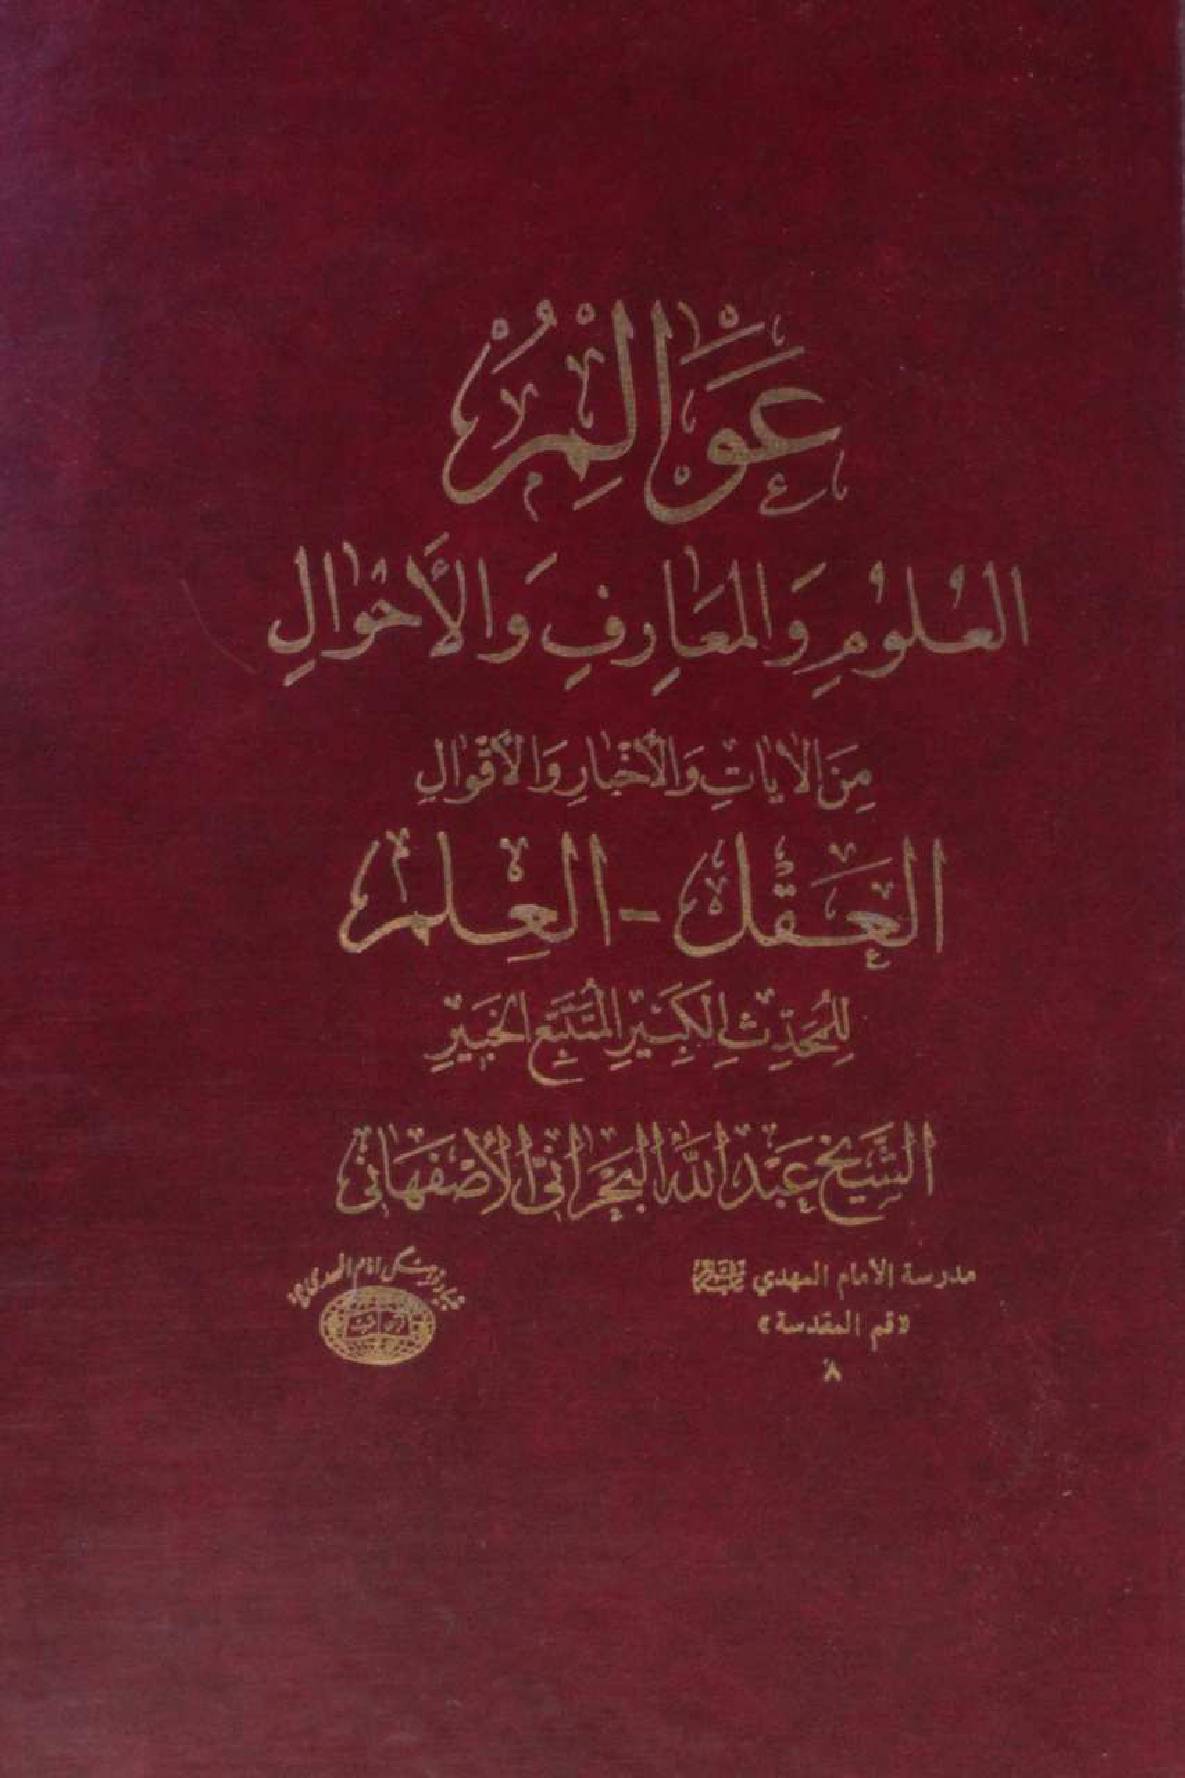 عَوَالِمُ
العُلُومِ وَالمَعَارِفِ وَالأَحْوَالِ
مِنَ الآيَاتِ وَالأَخْبَارِ وَالأَقْوَالِ
العَقْل - العِلم
لِلمُحَدِّثِ الكَبِيْرِ المُتَتَبِّعِ الخَبِيْرِ
الشَّيْخ عَبْد اللّه البَحْرَانِيّ الأصْفَهَانِي
مدرسة الامام المهدي
«قم المقدسة»
٨